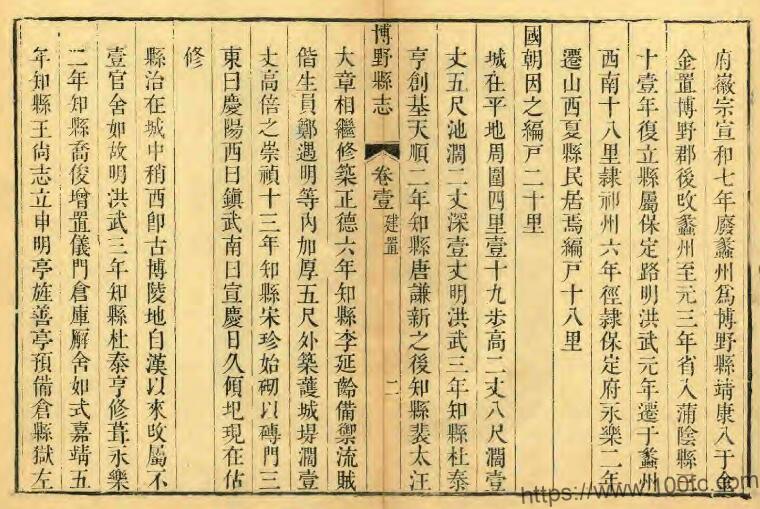 府徽宗宣和七年廢蠡州爲博野縣靖康入于金
金置博野郡後改蠡州至元三年省入蒲陰縣三
十壹年復立縣屬保定路明洪武元年遷于蠡州
西南十八里隸祁州六年徑隸保定府永樂二年
遷山西夏縣民居焉編戸十八里
國朝因之編戸二十里
城在平地周圍四里壹十九歩高二丈八尺濶壹
丈五尺池濶二丈深壹丈明洪武三年知縣杜泰
亨創基天順二年知縣唐謙新之後知縣裴太汪
博野縣志 卷壹 建置 二
大章相繼修築正德六年知縣李延齡備禦流賊
偕生員鄭遇明等內加厚五尺外築護城堤濶壹
丈高倍之崇禎十三年知縣宋珍始砌以磚門三
東曰慶陽西曰鎮武南曰宣慶日久傾圯現在估
修
縣治在城中稍西卽古博陵地自漢以來改屬不
壹官舍如故明洪武三年知縣杜泰亨修葺永樂
二年知縣喬俊增置儀門倉庫廨舍如式嘉靖五
年知縣王尙志立申明亭旌善亭預備倉縣獄左
https://www.100fc.com